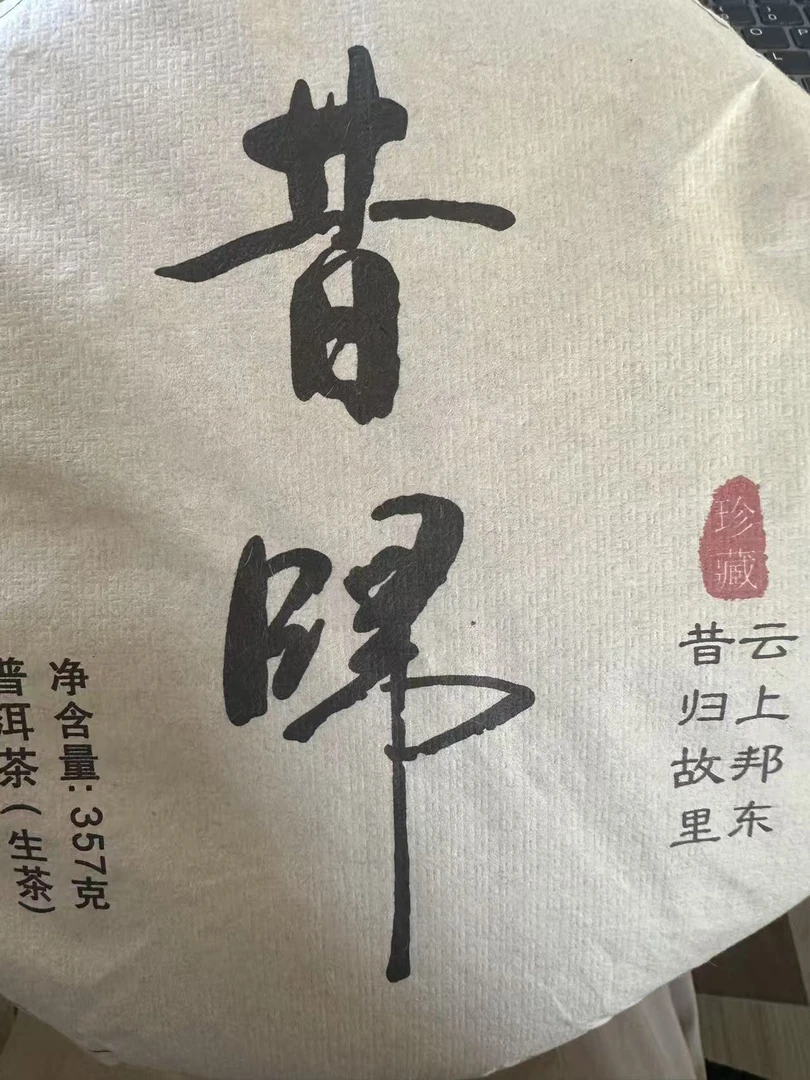 昔歸
珍藏
云上邦东
昔归故里
净含量:357克
普洱茶(生茶)